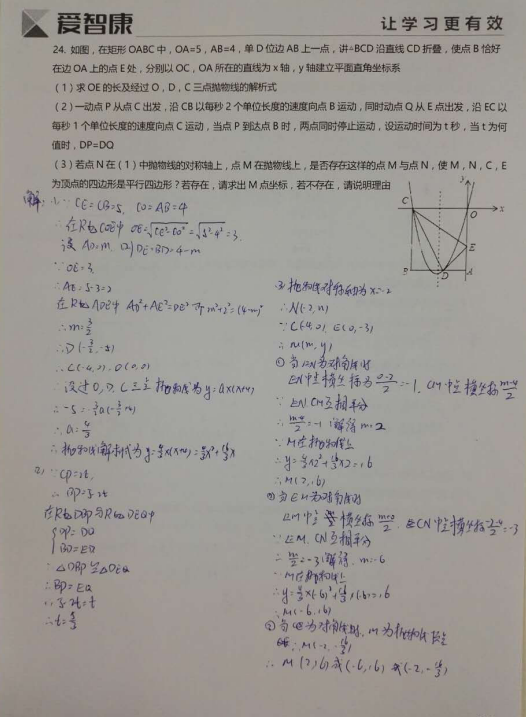 爱智康
让学习更有效
24. 如图，在矩形 OABC 中，OA=5，AB=4，单 D 位边 AB 上一点，讲△BCD 沿直线 CD 折叠，使点 B 恰好
在边 OA 上的点 E 处，分别以 OC，OA 所在的直线为 x 轴，y 轴建立平面直角坐标系
（1）求 OE 的长及经过 O，D，C 三点抛物线的解析式
（2）一动点 P 从点 C 出发，沿 CB 以每秒 2 个单位长度的速度向点 B 运动，同时动点 Q 从 E 点出发，沿 EC 以
每秒 1 个单位长度的速度向点 C 运动，当点 P 到达点 B 时，两点同时停止运动，设运动时间为 t 秒，当 t 为何
值时，DP=DQ
（3）若点 N 在（1）中抛物线的对称轴上，点 M 在抛物线上，是否存在这样的点 M 与点 N，使 M，N，C，E
为顶点的四边形是平行四边形？若存在，请求出 M 点坐标，若不存在，请说明理由
y
C
O
x
E
B
D
A
解：
∵ CE=CB=5, CO=AB=4
∴在Rt△COE中 OE=√CE²-CO²=√5²-4²=3
设 AD=m, 则 DE=BD=4-m
∵OE=3
∴AE=5-3=2
在Rt△ADE中 AD²+AE²=DE² m²+2²=(4-m)²
∴m=3/2
∴D(-3/2,-5)
∵C(-4,0), O(0,0)
∴设过O,D,C三点抛物线为y=ax(x+4)
∴-5=-3/2a(-3/2+4)
∴a=4/3
∴抛物线解析式为y=4/3x(x+4)=4/3x²+16/3x
∵CP=2t,
∴BP=5-2t
在Rt△DBP与Rt△DEQ中
DP=DQ
BD=ED
∴△DBP≌△DEQ
∴BP=EQ
∴5-2t=t
∴t=5/3
抛物线对称轴为x=-2
∴N(-2,n)
∵C(-4,0), E(0,-3)
∴M(m,y)
EN中点横坐标为0-2/2=-1, CM中点横坐标m-4/2
∵EN CM互相平分
∴m-4/2=-1 解得m=2
∵M在抛物线上
∴y=4/3×2²+16/3×2=16
∴M(2,16)
②当EM为对角线时
EM中点横坐标m+0/2, CN中点横坐标-2-4/2=-3
∵EM, CN互相平分
∴m/2=-3 解得 m=-6
∵M在抛物线上
∴y=4/3×(-6)²+16/3×(-6)=16
∴M(-6,16)
∴M(-2,-16/3)
∴M(2,16)或(-6,16)或(-2,-16/3)